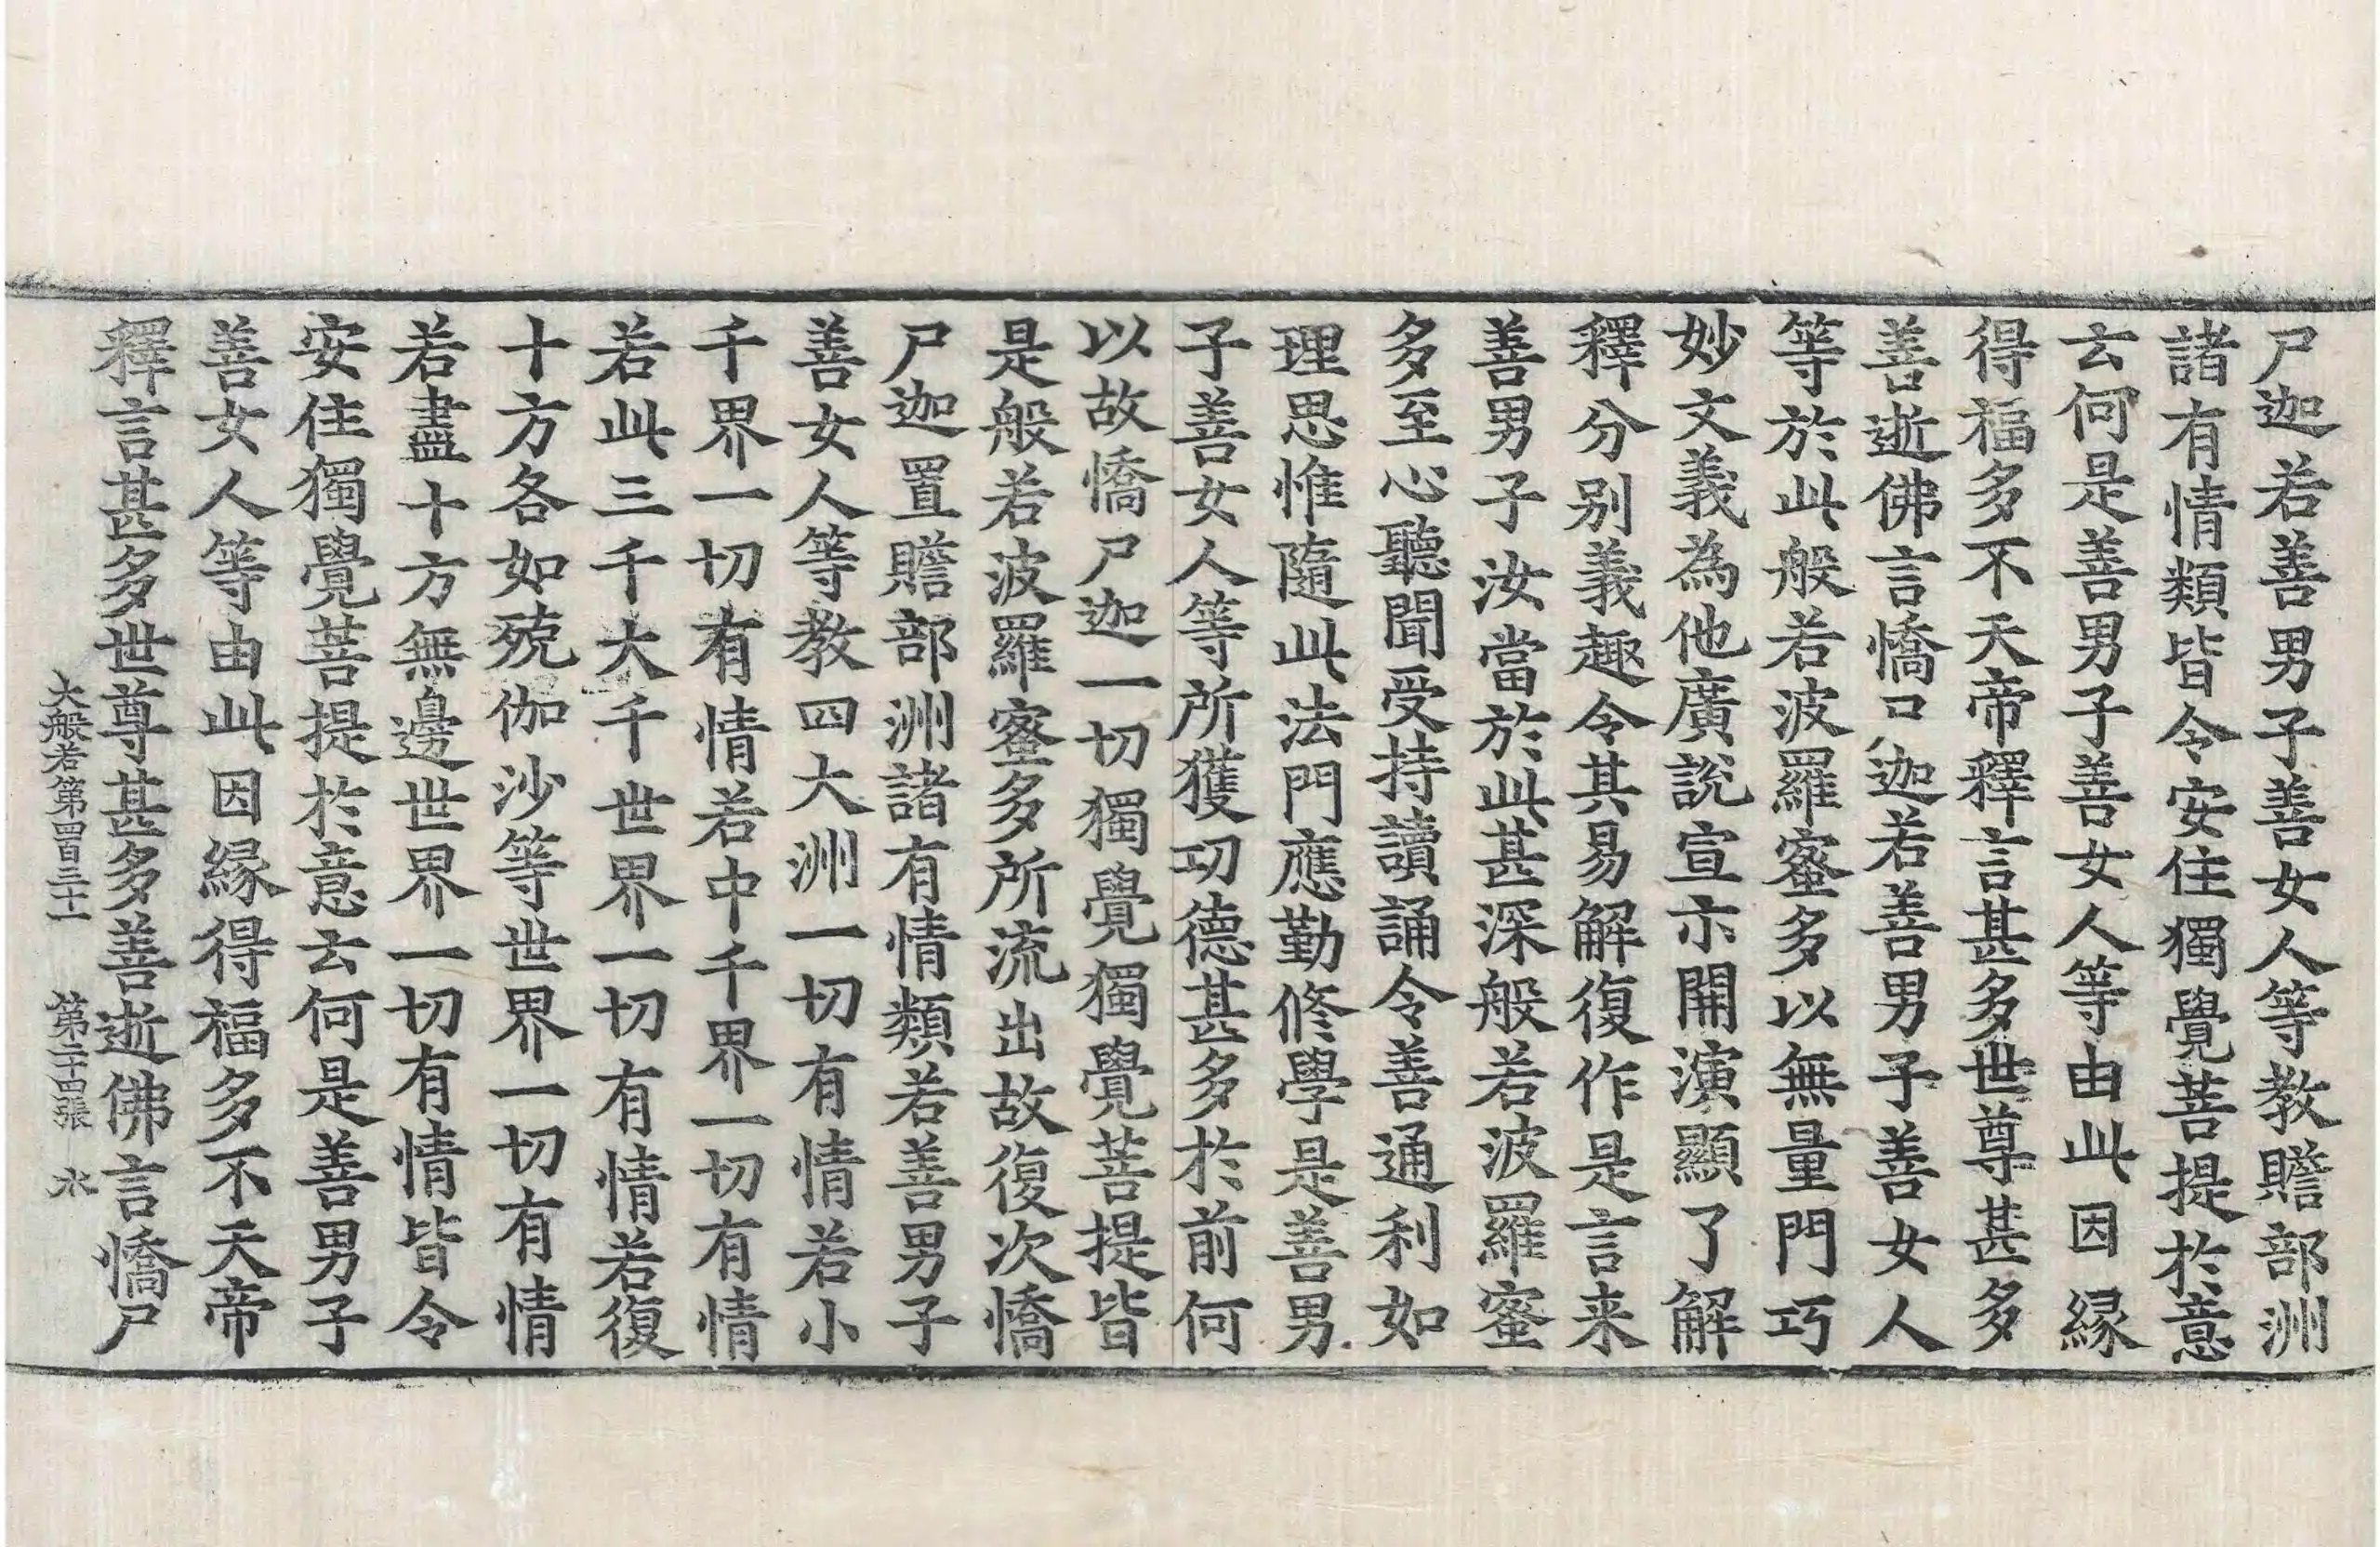 尸迦若善男子善女人等教贍部洲
諸有情類皆令安住獨覺菩提於意
云何是善男子善女人等由此因緣
得福多不天帝釋言甚多世尊甚多
善逝佛言憍尸迦若善男子善女人
等於此般若波羅蜜多以無量門巧
妙文義為他廣說宣示開演顯了解
釋分別義趣令其易解復作是言来
善男子汝當於此甚深般若波羅蜜
多至心聽聞受持讀誦令善通利如
理思惟隨此法門應勤修學是善男
子善女人等所獲功德甚多於前何
以故憍尸迦一切獨覺獨覺菩提皆
是般若波羅蜜多所流出故復次憍
尸迦置贍部洲諸有情類若善男子
善女人等教四大洲一切有情若小
千界一切有情若中千界一切有情
若此三千大千世界一切有情若復
十方各如殑伽沙等世界一切有情
若盡十方無邊世界一切有情皆令
安住獨覺菩提於意云何是善男子
善女人等由此因緣得福多不天帝
釋言甚多世尊甚多善逝佛言憍尸
大般若第四百三十一 第二十四張 水